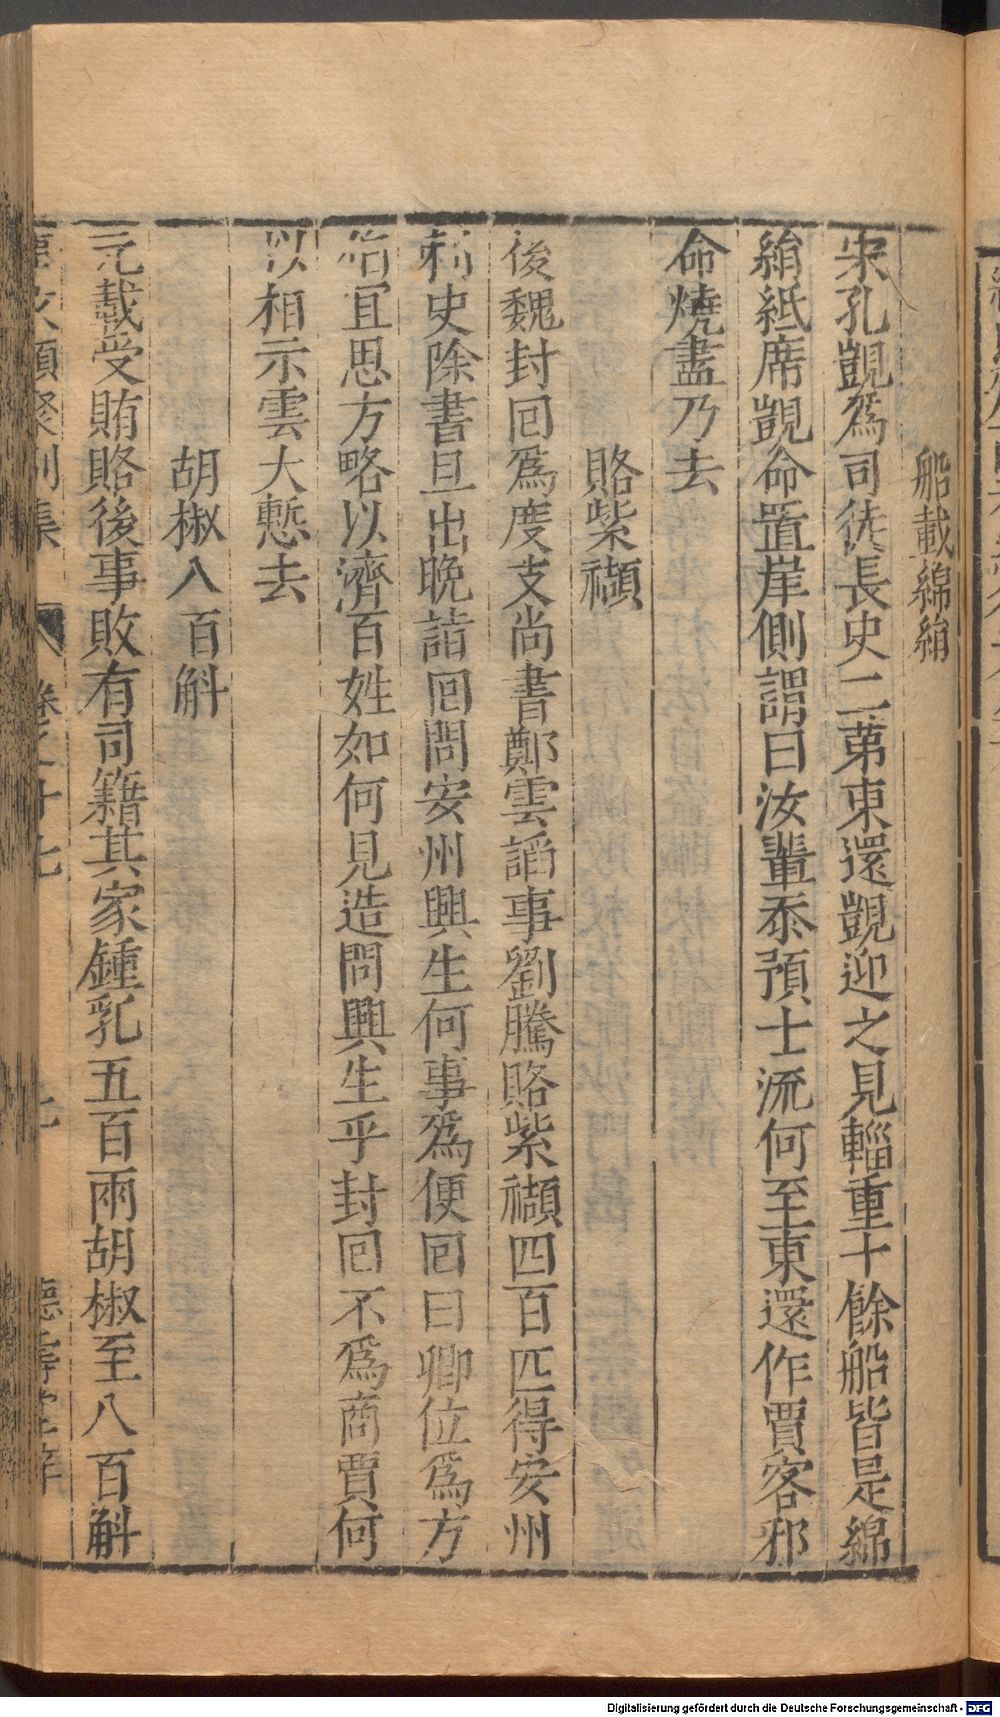 船載綿絹
宋孔覬爲司徒長史二苐東還覬迎之見輜重十餘船皆是綿
絹紙席覬命置岸側謂曰汝輩忝預士流何至東還作賈客邪
命燒盡乃去
賂紫纈
後魏封回爲度支尚書鄭雲謟事劉騰賂紫纈四百匹得安州
刺史除書旦出晚詣回問安州興生何事爲便回曰卿位爲方
伯宜思方略以濟百姓如何見造問興生乎封回不爲商賈何
以相示雲大慙去
胡椒八百斛
元載受賄賂後事敗有司籍其家鍾乳五百兩胡椒至八百斛
類聚別集 卷之十七 七 德壽堂梓
Digitalisierung gefördert durch die Deutsche Forschungsgemeinschaft - DFG